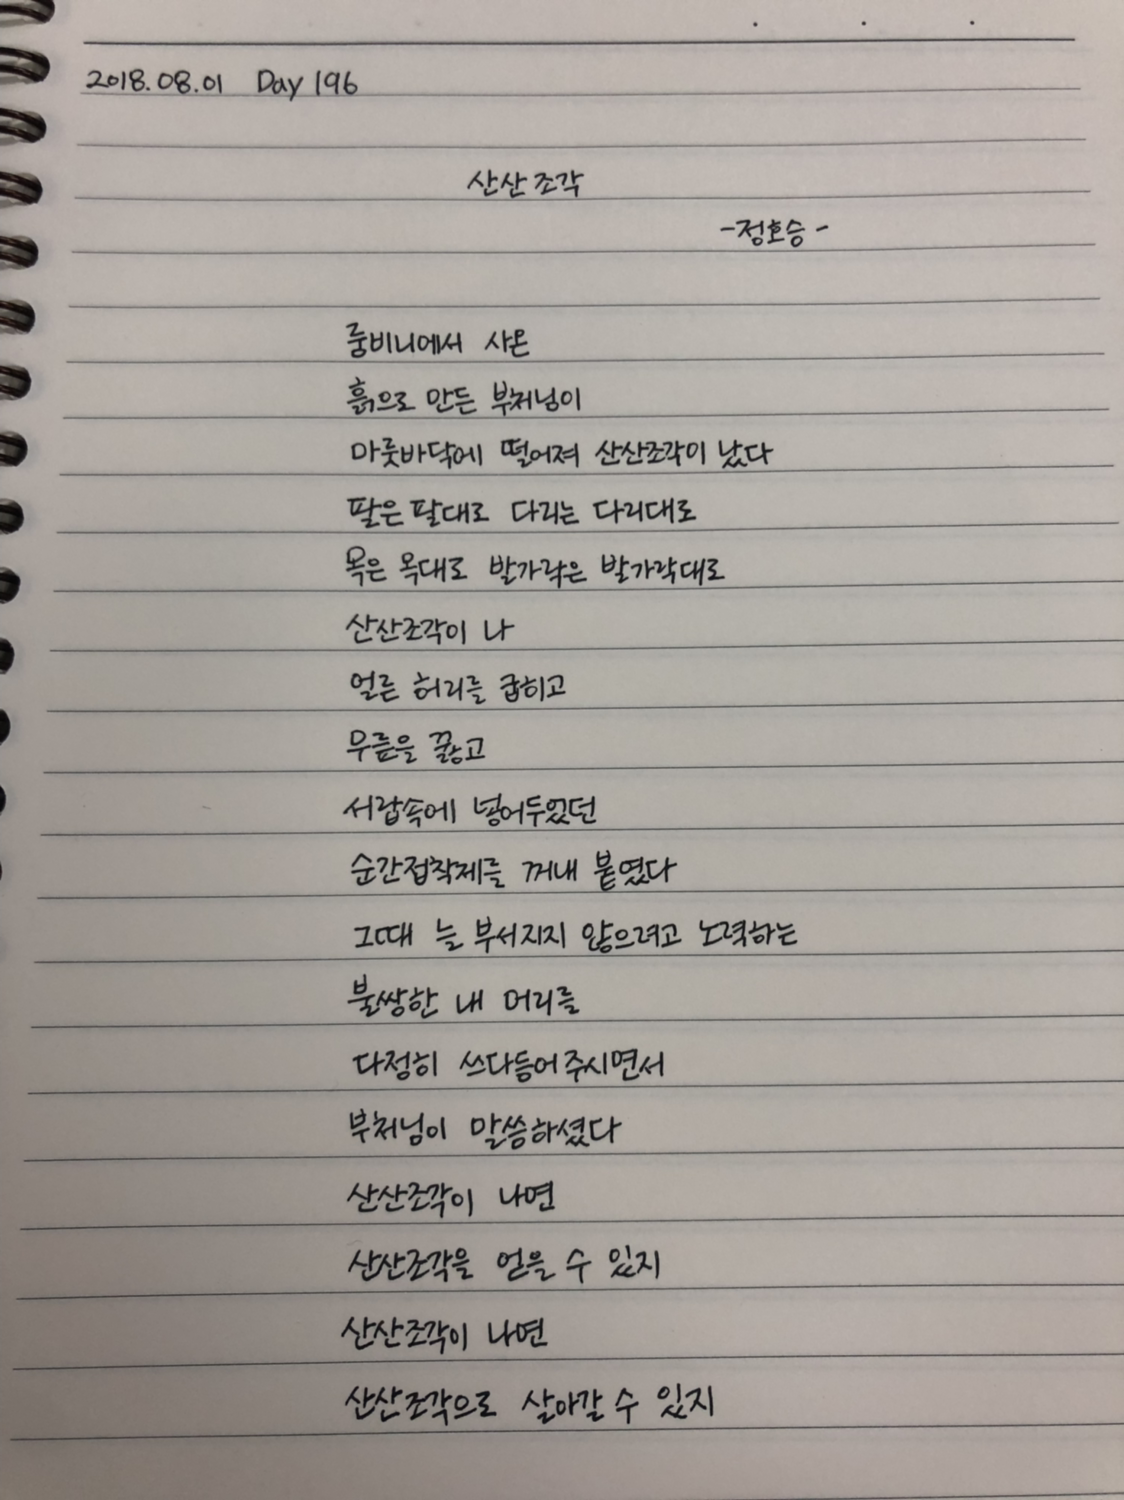 2018.08.01 Day 196
산산조각
-정호승-
룽비니에서 사온
흙으로 만든 부처님이
마룻바닥에 떨어져 산산조각이 났다
팔은 팔대로 다리는 다리대로
목은 목대로 발가락은 발가락대로
산산조각이 나
얼른 허리를 굽히고
무릎을 꿇고
서랍속에 넣어두었던
순간접착제를 꺼내 붙였다
그때 늘 부서지지 않으려고 노력하는
불쌍한 내 머리를
다정히 쓰다듬어주시면서
부처님이 말씀하셨다
산산조각이 나면
산산조각을 얻을 수 있지
산산조각이 나면
산산조각으로 살아갈 수 있지